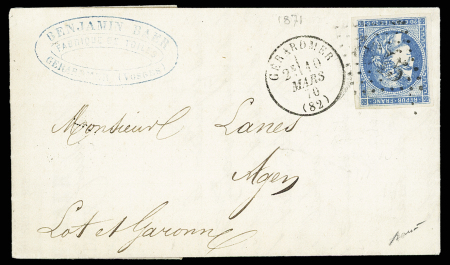 BENJAMIN HAER
FABRIQUE
GERARDMER (VOSGES)
(87)
GERARDMER
2E
10
MARS
(82)
REPUB. FRANC.
Monsieur Lanes
Agen
Lot et Garonne